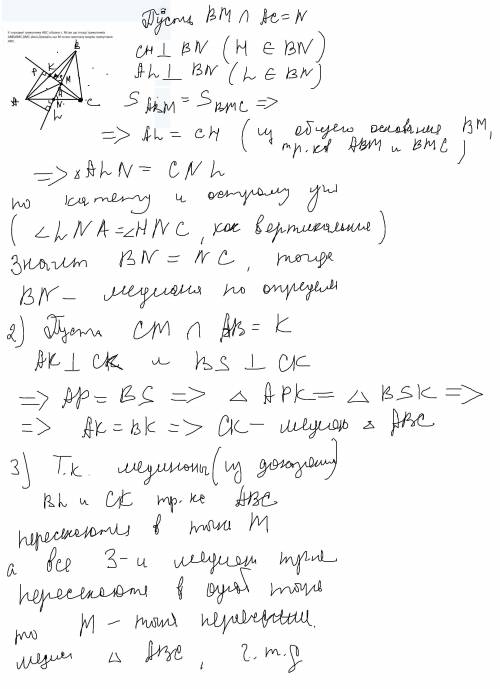 B
K
P
S
M
H
A
N
C
L
Пусть BM ∩ AC = N
CH ⊥ BN ( H ∈ BN )
AL ⊥ BN ( L ∈ BN )
S ABM = S BMC =>
=> AL = CH ( из общего основания BM,
тр.ка ABM и BMC )
=> △ ALN = CNL
по катету и острому угл
( ∠LNA = ∠HNC, как вертикальные )
Значит BN = NC, тогда
BN – медиана по определ
2) Пусть CM ∩ AB = K
AK ⊥ CK и BS ⊥ CK
=> AP = BS => △ APK = △ BSK =>
=> AK = BK => CK – медиан △ ABC
3) Т.к. медианы (из доказан)
BL и CK тр.ке ABC
пересекаются в точке M
а все 3-и медиан
пересекаются в одной точке
то M – точка пересечения
медиан △ ABC, ч.т.д